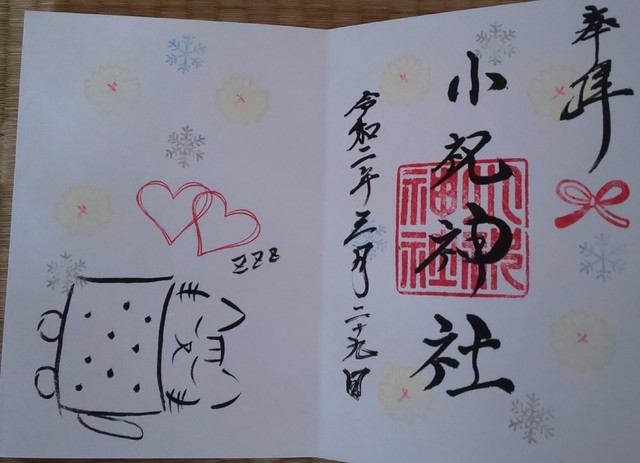 奉拝
小祝神社
令和二年三月二十九日
zzz